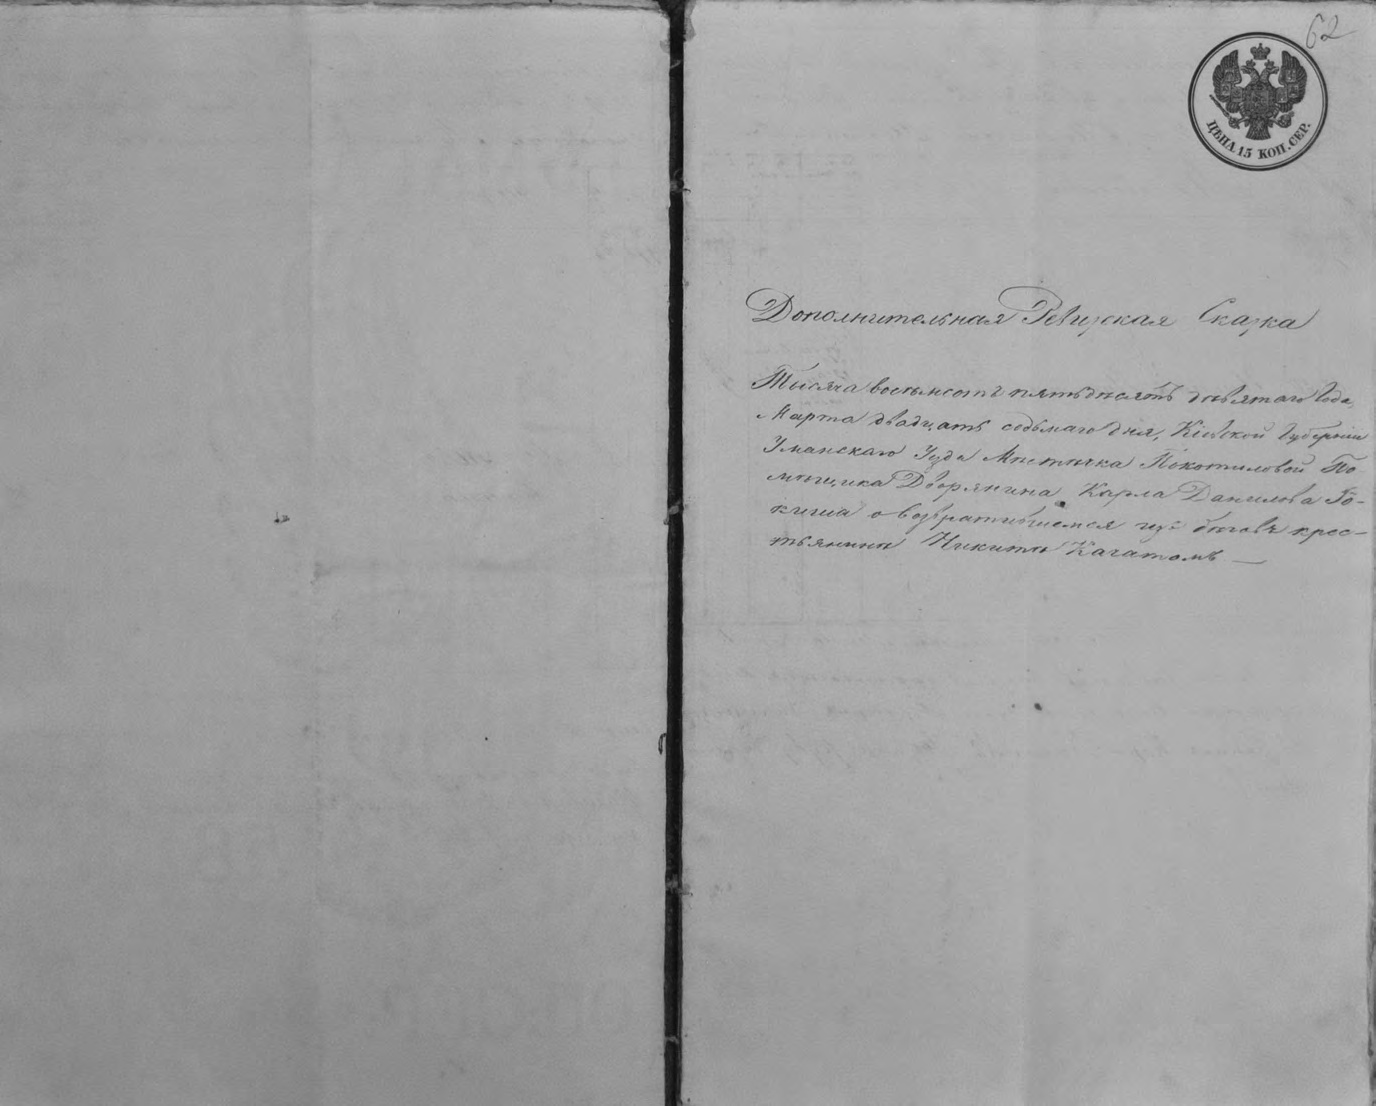 62
ЦѢНА 15 КОП. СЕР.
Дополнительная Ревизская Сказка
Тысяча восемьсотъ пятьдесятъ девятаго Года
Марта двадцать седьмаго дня, Кіевской Губерніи
Уманскаго Уезда Местечка Покотиловой По-
мещика Дворянина Карла Данилова
о возвратившемся изъ беговъ крес-
тьянине Никите